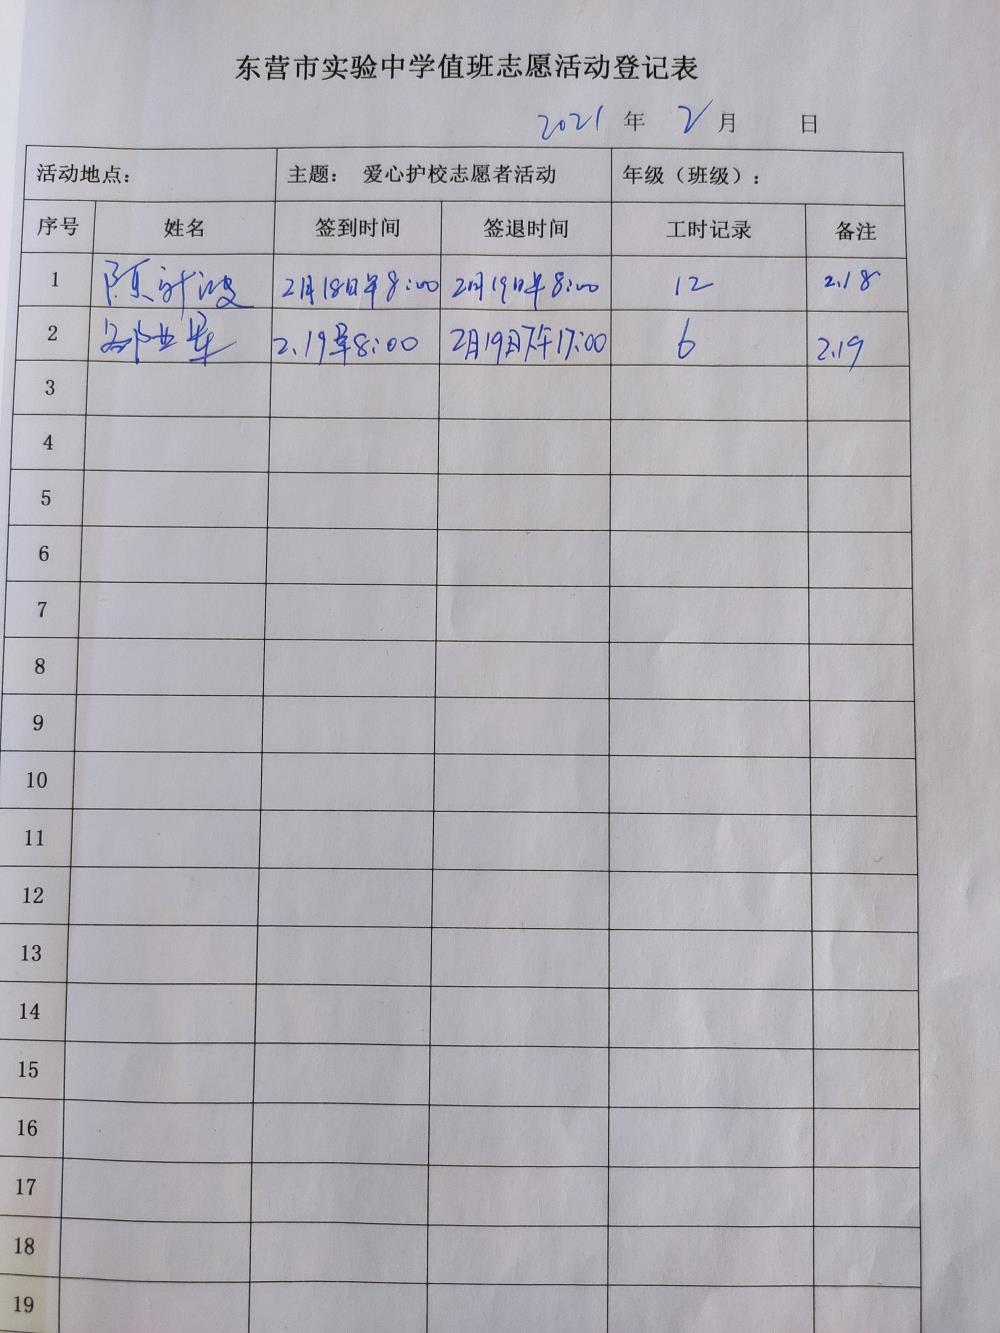 东营市实验中学值班志愿活动登记表
2021 年 2 月 日
活动地点： 主题： 爱心护校志愿者活动 年级（班级）：
序号 姓名 签到时间 签退时间 工时记录 备注
1 陈 波 2月18日早8:00 2月19日早8:00 12 2.18
2 2.19早8:00 2月19日下午17:00 6 2.19
3
4
5
6
7
8
9
10
11
12
13
14
15
16
17
18
19